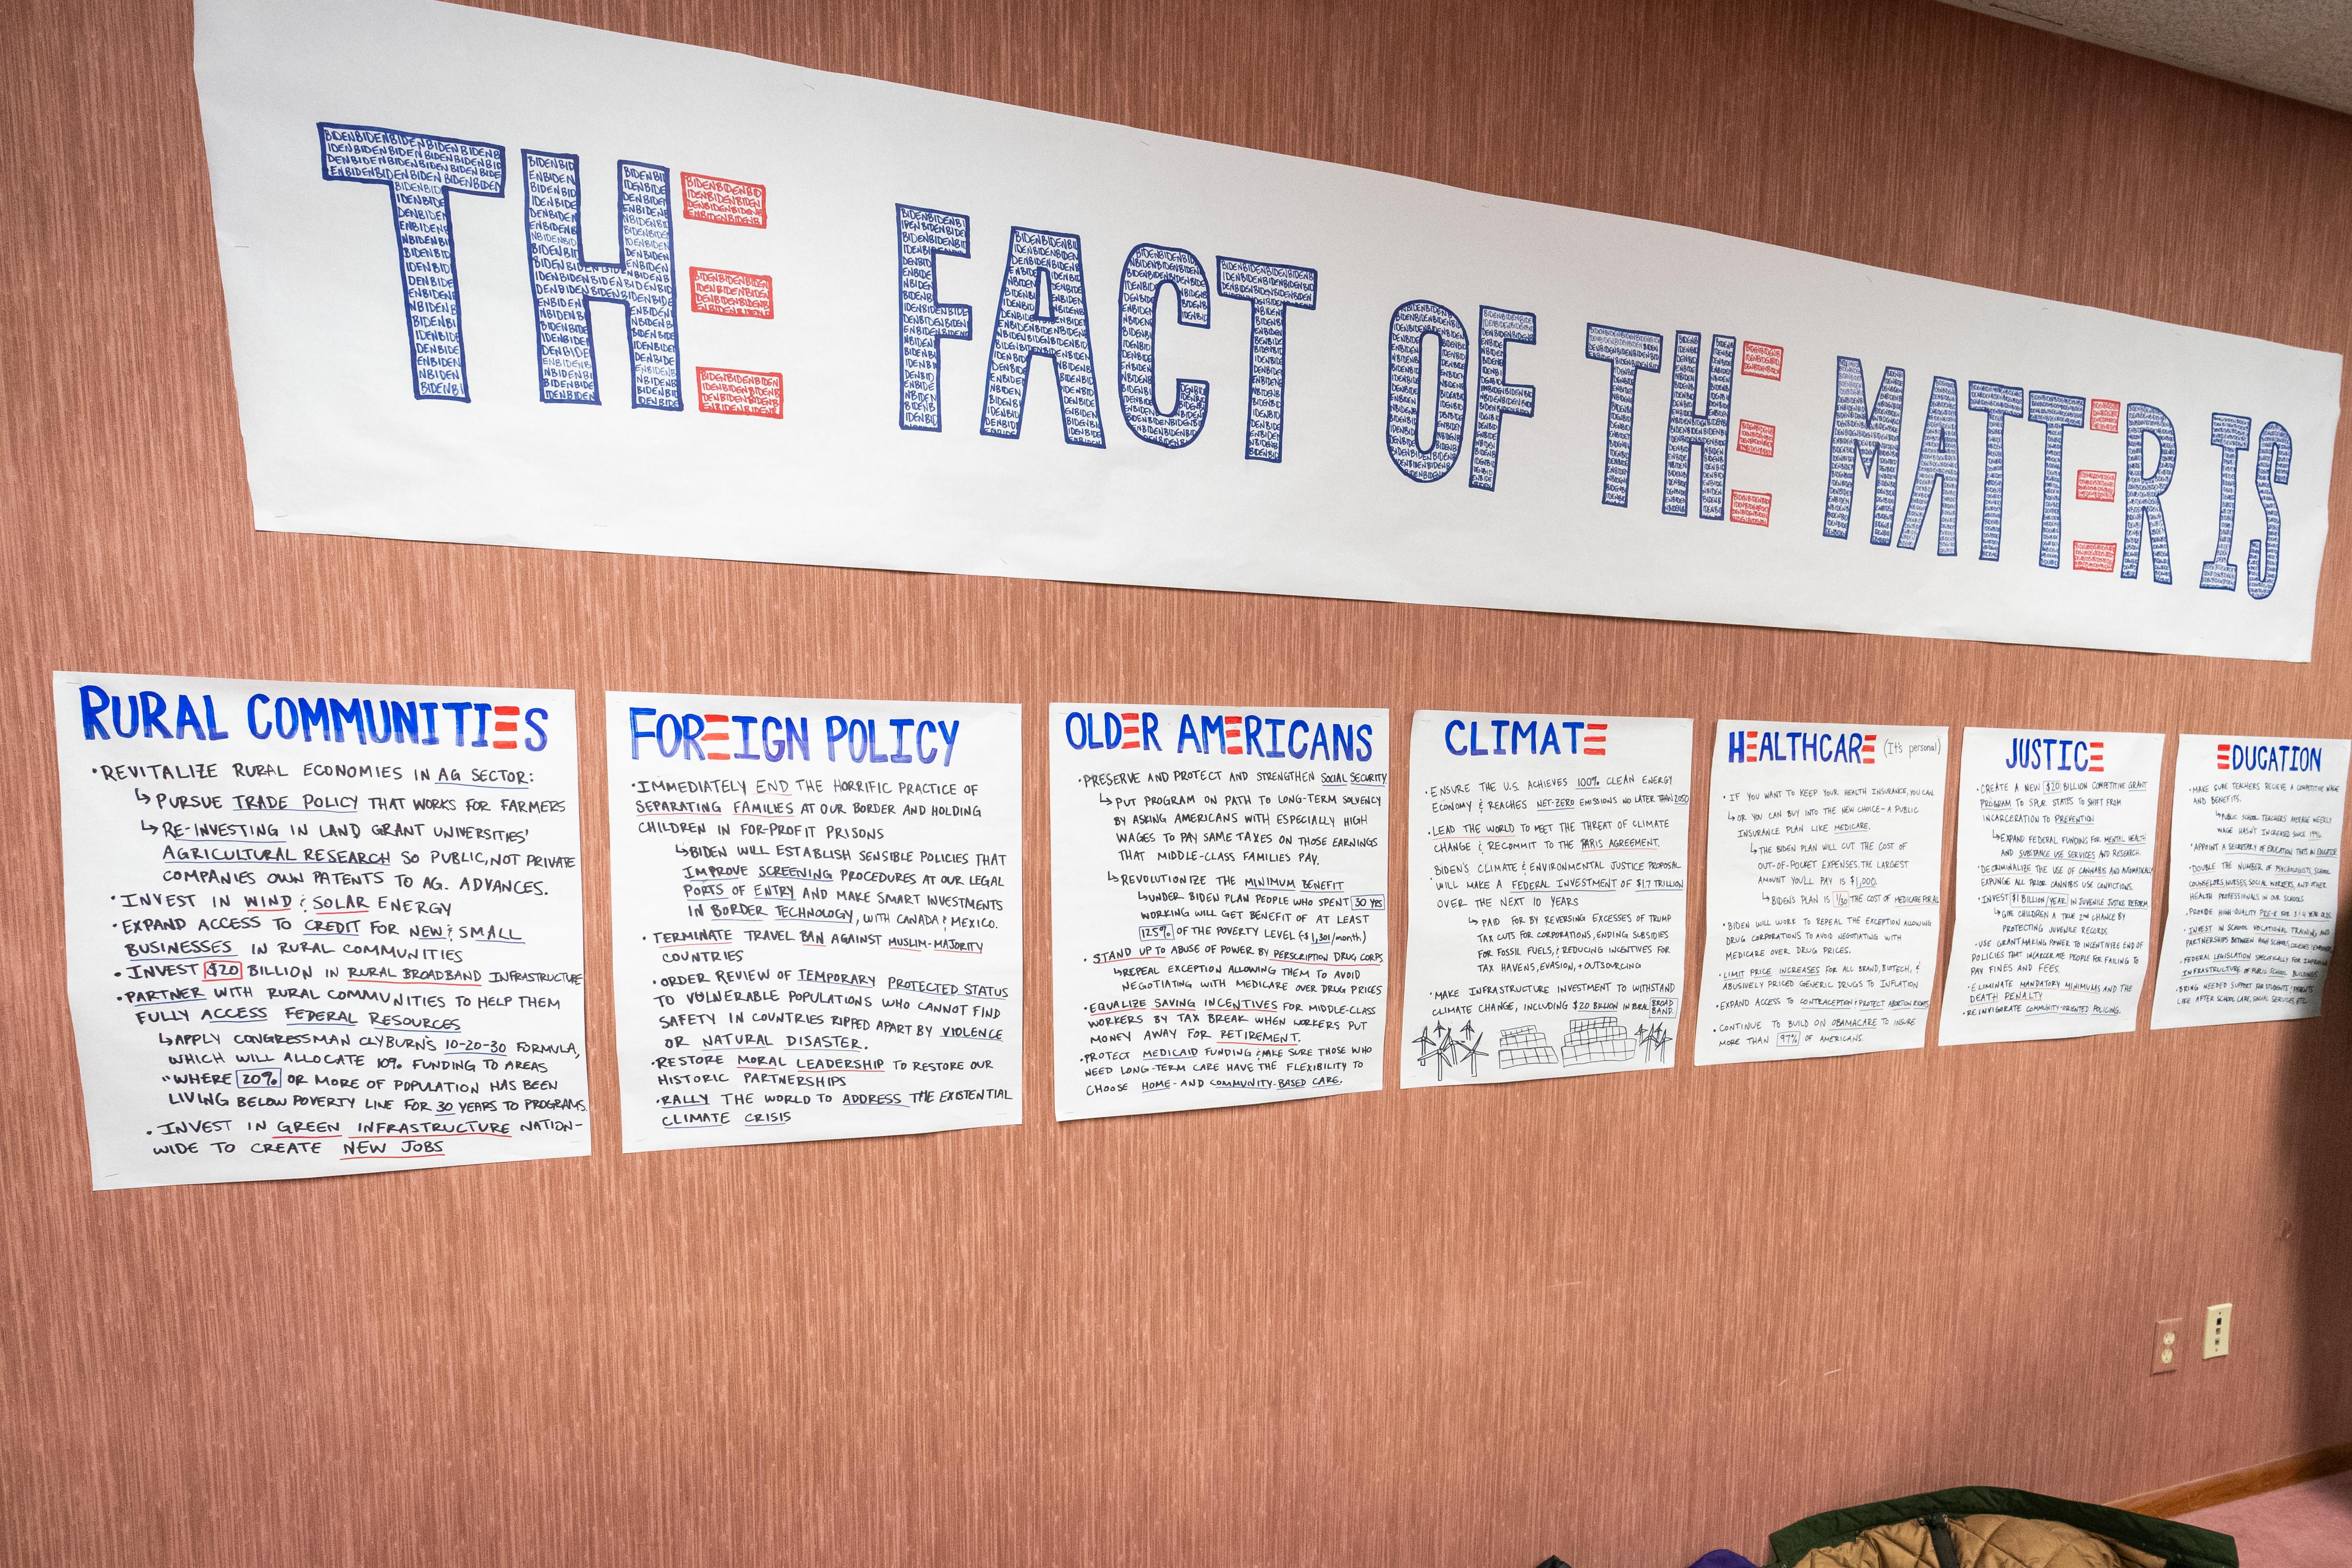 THE FACT OF THE MATTER IS
RURAL COMMUNITIES
•REVITALIZE RURAL ECONOMIES IN AG SECTOR:
↳ PURSUE TRADE POLICY THAT WORKS FOR FARMERS
↳ RE-INVESTING IN LAND GRANT UNIVERSITIES'
AGRICULTURAL RESEARCH SO PUBLIC, NOT PRIVATE
COMPANIES OWN PATENTS TO AG. ADVANCES.
• INVEST IN WIND & SOLAR ENERGY
• EXPAND ACCESS TO CREDIT FOR NEW & SMALL
BUSINESSES IN RURAL COMMUNITIES
• INVEST $20 BILLION IN RURAL BROADBAND INFRASTRUCTURE
• PARTNER WITH RURAL COMMUNITIES TO HELP THEM
FULLY ACCESS FEDERAL RESOURCES
↳ APPLY CONGRESSMAN CLYBURN'S 10-20-30 FORMULA,
WHICH WILL ALLOCATE 10% FUNDING TO AREAS
"WHERE 20% OR MORE OF POPULATION HAS BEEN
LIVING BELOW POVERTY LINE FOR 30 YEARS TO PROGRAMS.
• INVEST IN GREEN INFRASTRUCTURE NATION-
WIDE TO CREATE NEW JOBS
FOREIGN POLICY
•IMMEDIATELY END THE HORRIFIC PRACTICE OF
SEPARATING FAMILIES AT OUR BORDER AND HOLDING
CHILDREN IN FOR-PROFIT PRISONS
↳BIDEN WILL ESTABLISH SENSIBLE POLICIES THAT
IMPROVE SCREENING PROCEDURES AT OUR LEGAL
PORTS OF ENTRY AND MAKE SMART INVESTMENTS
IN BORDER TECHNOLOGY, WITH CANADA & MEXICO.
• TERMINATE TRAVEL BAN AGAINST MUSLIM-MAJORITY
COUNTRIES
•ORDER REVIEW OF TEMPORARY PROTECTED STATUS
TO VULNERABLE POPULATIONS WHO CANNOT FIND
SAFETY IN COUNTRIES RIPPED APART BY VIOLENCE
OR NATURAL DISASTER.
•RESTORE MORAL LEADERSHIP TO RESTORE OUR
HISTORIC PARTNERSHIPS
•RALLY THE WORLD TO ADDRESS THE EXISTENTIAL
CLIMATE CRISIS
OLDER AMERICANS
•PRESERVE AND PROTECT AND STRENGTHEN SOCIAL SECURITY
↳ PUT PROGRAM ON PATH TO LONG-TERM SOLVENCY
BY ASKING AMERICANS WITH ESPECIALLY HIGH
WAGES TO PAY SAME TAXES ON THOSE EARNINGS
THAT MIDDLE-CLASS FAMILIES PAY.
↳ REVOLUTIONIZE THE MINIMUM BENEFIT
↳UNDER BIDEN PLAN PEOPLE WHO SPENT 30 YRS
WORKING WILL GET BENEFIT OF AT LEAST
125% OF THE POVERTY LEVEL (~$1,301/month)
• STAND UP TO ABUSE OF POWER BY PERSCRIPTION DRUG CORPS
↳REPEAL EXCEPTION ALLOWING THEM TO AVOID
NEGOTIATING WITH MEDICARE OVER DRUG PRICES
•EQUALIZE SAVING INCENTIVES FOR MIDDLE-CLASS
WORKERS BY TAX BREAK WHEN WORKERS PUT
MONEY AWAY FOR RETIREMENT.
•PROTECT MEDICAID FUNDING & MAKE SURE THOSE WHO
NEED LONG-TERM CARE HAVE THE FLEXIBILITY TO
CHOOSE HOME- AND COMMUNITY-BASED CARE.
CLIMATE
• ENSURE THE U.S. ACHIEVES 100% CLEAN ENERGY
ECONOMY & REACHES NET-ZERO EMISSIONS NO LATER THAN 2050
• LEAD THE WORLD TO MEET THE THREAT OF CLIMATE
CHANGE & RECOMMIT TO THE PARIS AGREEMENT.
• BIDEN'S CLIMATE & ENVIRONMENTAL JUSTICE PROPOSAL
WILL MAKE A FEDERAL INVESTMENT OF $1.7 TRILLION
OVER THE NEXT 10 YEARS
↳ PAID FOR BY REVERSING EXCESSES OF TRUMP
TAX CUTS FOR CORPORATIONS, ENDING SUBSIDIES
FOR FOSSIL FUELS, & REDUCING INCENTIVES FOR
TAX HAVENS, EVASION, + OUTSOURCING
•MAKE INFRASTRUCTURE INVESTMENT TO WITHSTAND
CLIMATE CHANGE, INCLUDING $20 BILLION IN RURAL BROAD
BAND.
HEALTHCARE (It's personal)
• IF YOU WANT TO KEEP YOUR HEALTH INSURANCE, YOU CAN
↳ OR YOU CAN BUY INTO THE NEW CHOICE-A PUBLIC
INSURANCE PLAN LIKE MEDICARE.
↳ THE BIDEN PLAN WILL CUT THE COST OF
OUT-OF-POCKET EXPENSES. THE LARGEST
AMOUNT YOU'LL PAY IS $1,000.
↳ BIDEN'S PLAN IS 1/30 THE COST OF MEDICARE FOR ALL
• BIDEN WILL WORK TO REPEAL THE EXCEPTION ALLOWING
DRUG CORPORATIONS TO AVOID NEGOTIATING WITH
MEDICARE OVER DRUG PRICES.
• LIMIT PRICE INCREASES FOR ALL BRAND, BIOTECH, &
ABUSIVELY PRICED GENERIC DRUGS TO INFLATION
• EXPAND ACCESS TO CONTRACEPTION & PROTECT ABORTION RIGHTS
• CONTINUE TO BUILD ON OBAMACARE TO INSURE
MORE THAN 97% OF AMERICANS.
JUSTICE
• CREATE A NEW $20 BILLION COMPETITIVE GRANT
PROGRAM TO SPUR STATES TO SHIFT FROM
INCARCERATION TO PREVENTION
↳EXPAND FEDERAL FUNDING FOR MENTAL HEALTH
AND SUBSTANCE USE SERVICES AND RESEARCH.
•DECRIMINALIZE THE USE OF CANNABIS AND AUTOMATICALLY
EXPUNGE ALL PRIOR CANNIBIS USE CONVICTIONS.
•INVEST $1 BILLION/YEAR IN JUVENILE JUSTICE REFORM
↳ GIVE CHILDREN A TRUE 2nd CHANCE BY
PROTECTING JUVENILE RECORDS.
•USE GRANT MAKING POWER TO INCENTIVIZE END OF
POLICIES THAT INCARCERATE PEOPLE FOR FAILING TO
PAY FINES AND FEES.
•ELIMINATE MANDATORY MINIMUMS AND THE
DEATH PENALTY
•REINVIGORATE COMMUNITY-ORIENTED POLICING.
EDUCATION
•MAKE SURE TEACHERS RECIEVE A COMPETITIVE WAGE
AND BENEFITS.
↳PUBLIC SCHOOL TEACHERS AVERAGE WEEKLY
WAGE HASN'T INCREASED SINCE 1996.
•APPOINT A SECRETARY OF EDUCATION THAT IS AN EDUCATOR
•DOUBLE THE NUMBER OF PSYCHOLOGISTS, SCHOOL
COUNSELORS, NURSES, SOCIAL WORKERS, AND OTHER
HEALTH PROFESSIONALS IN OUR SCHOOLS.
•PROVIDE HIGH-QUALITY PRE-K FOR 3 & 4 YEAR OLDS.
•INVEST IN SCHOOL VOCATIONAL TRAINING AND
PARTNERSHIPS BETWEEN HIGH SCHOOLS,
•FEDERAL LEGISLATION SPECIFICALLY FOR IMPROVING
INFRASTRUCTURE OF PUBLIC SCHOOL BUILDINGS.
•BRING NEEDED SUPPORT FOR STUDENTS & PARENTS
LIKE AFTER SCHOOL CARE, SOCIAL SERVICES, ETC.